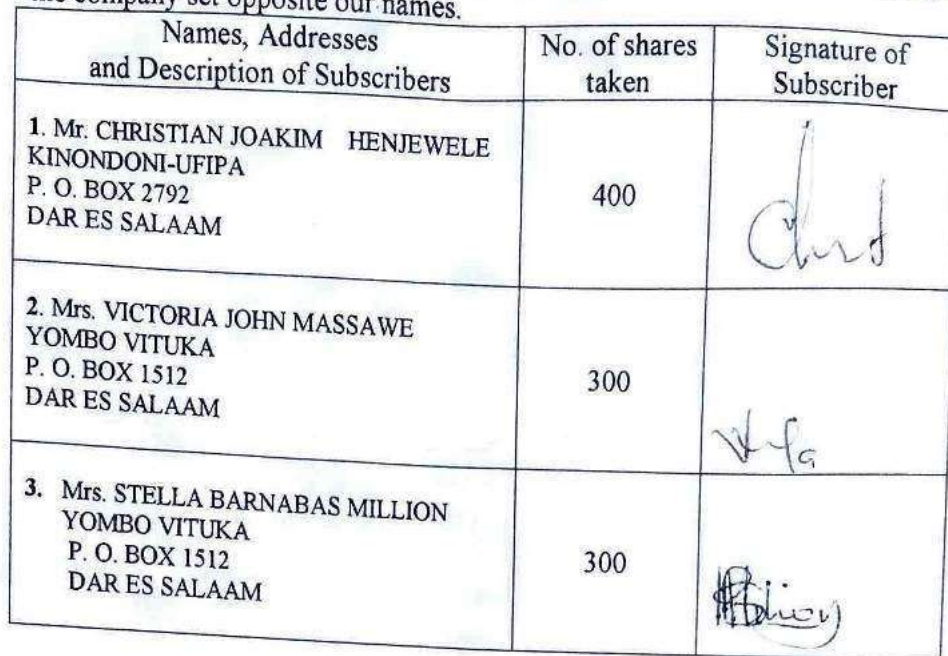 the company set opposite our names.
Names, Addresses
and Description of Subscribers
No. of shares
taken
Signature of
Subscriber
1. Mr. CHRISTIAN JOAKIM HENJEWELE
KINONDONI-UFIPA
P. O. BOX 2792
DAR ES SALAAM
400
2. Mrs. VICTORIA JOHN MASSAWE
YOMBO VITUKA
P. O. BOX 1512
DAR ES SALAAM
300
3. Mrs. STELLA BARNABAS MILLION
YOMBO VITUKA
P. O. BOX 1512
DAR ES SALAAM
300